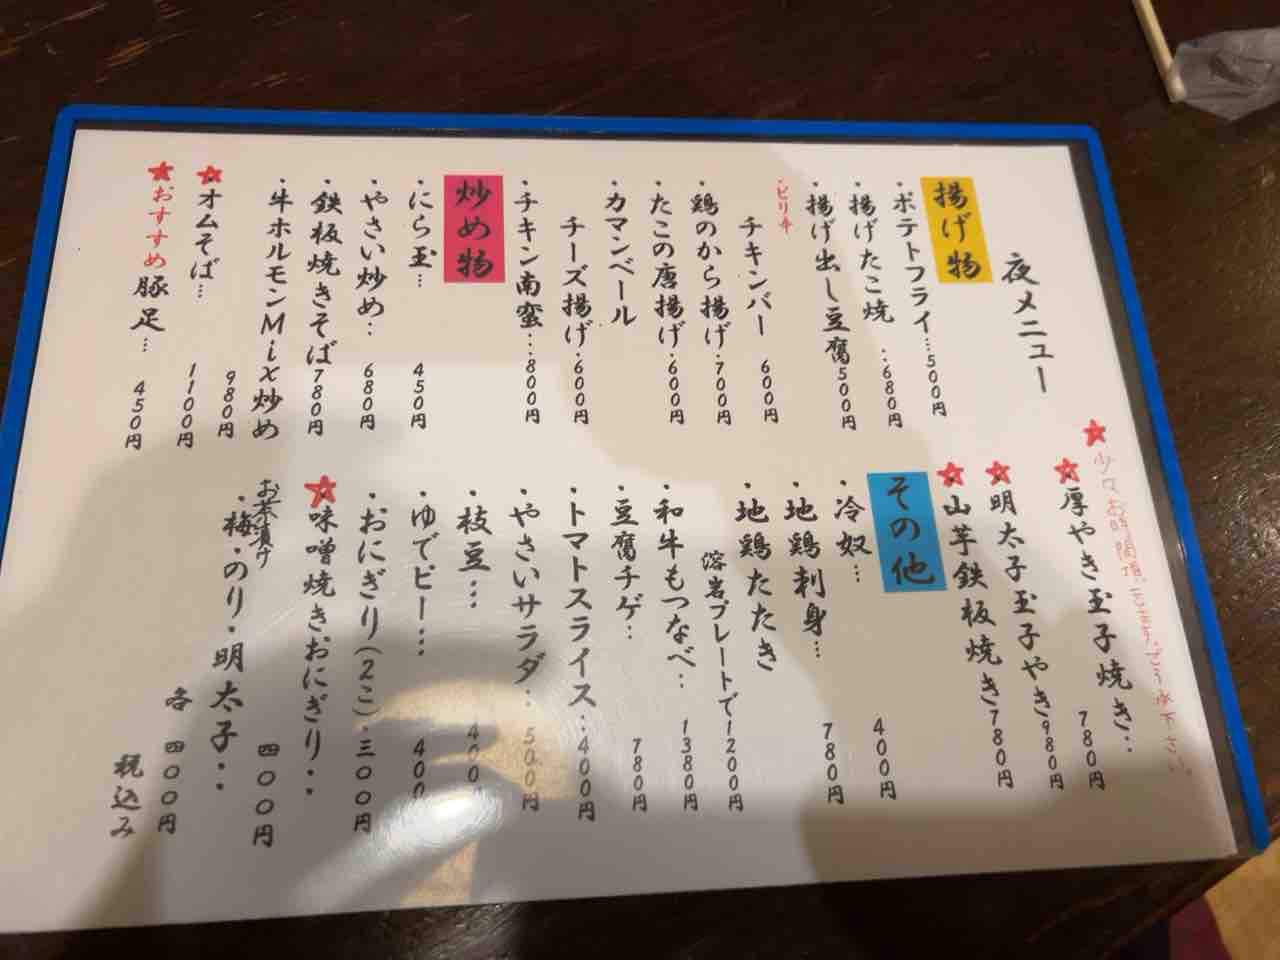 夜メニュー
揚げ物
・ポテトフライ…500円
・揚げたこ焼…680円
・揚げ出し豆腐500円
・ピリ辛
チキンバー 600円
・鶏のから揚げ・700円
・たこの唐揚げ・600円
・カマンベール
チーズ揚げ・600円
・チキン南蛮…800円
炒め物
・にら玉… 450円
・やさい炒め… 680円
・鉄板焼きそば780円
・牛ホルモンMix炒め
980円
★オムそば… 1100円
★おすすめ 豚足… 450円
★少々お時間頂きます。ご了承下さい。
★厚やき玉子焼き… 780円
★明太子玉子やき980円
★山芋鉄板焼き780円
その他
・冷奴… 400円
・地鶏刺身… 780円
・地鶏たたき
溶岩プレートで1200円
・和牛もつなべ… 1380円
・豆腐チゲ… 780円
・トマトスライス…400円
・やさいサラダ… 500円
・枝豆… 400
・ゆでピー… 400
・おにぎり(2こ)・三〇〇円
★味噌焼きおにぎり・・
四〇〇円
お茶漬け
・梅・のり・明太子・・
各 四〇〇円
税込み